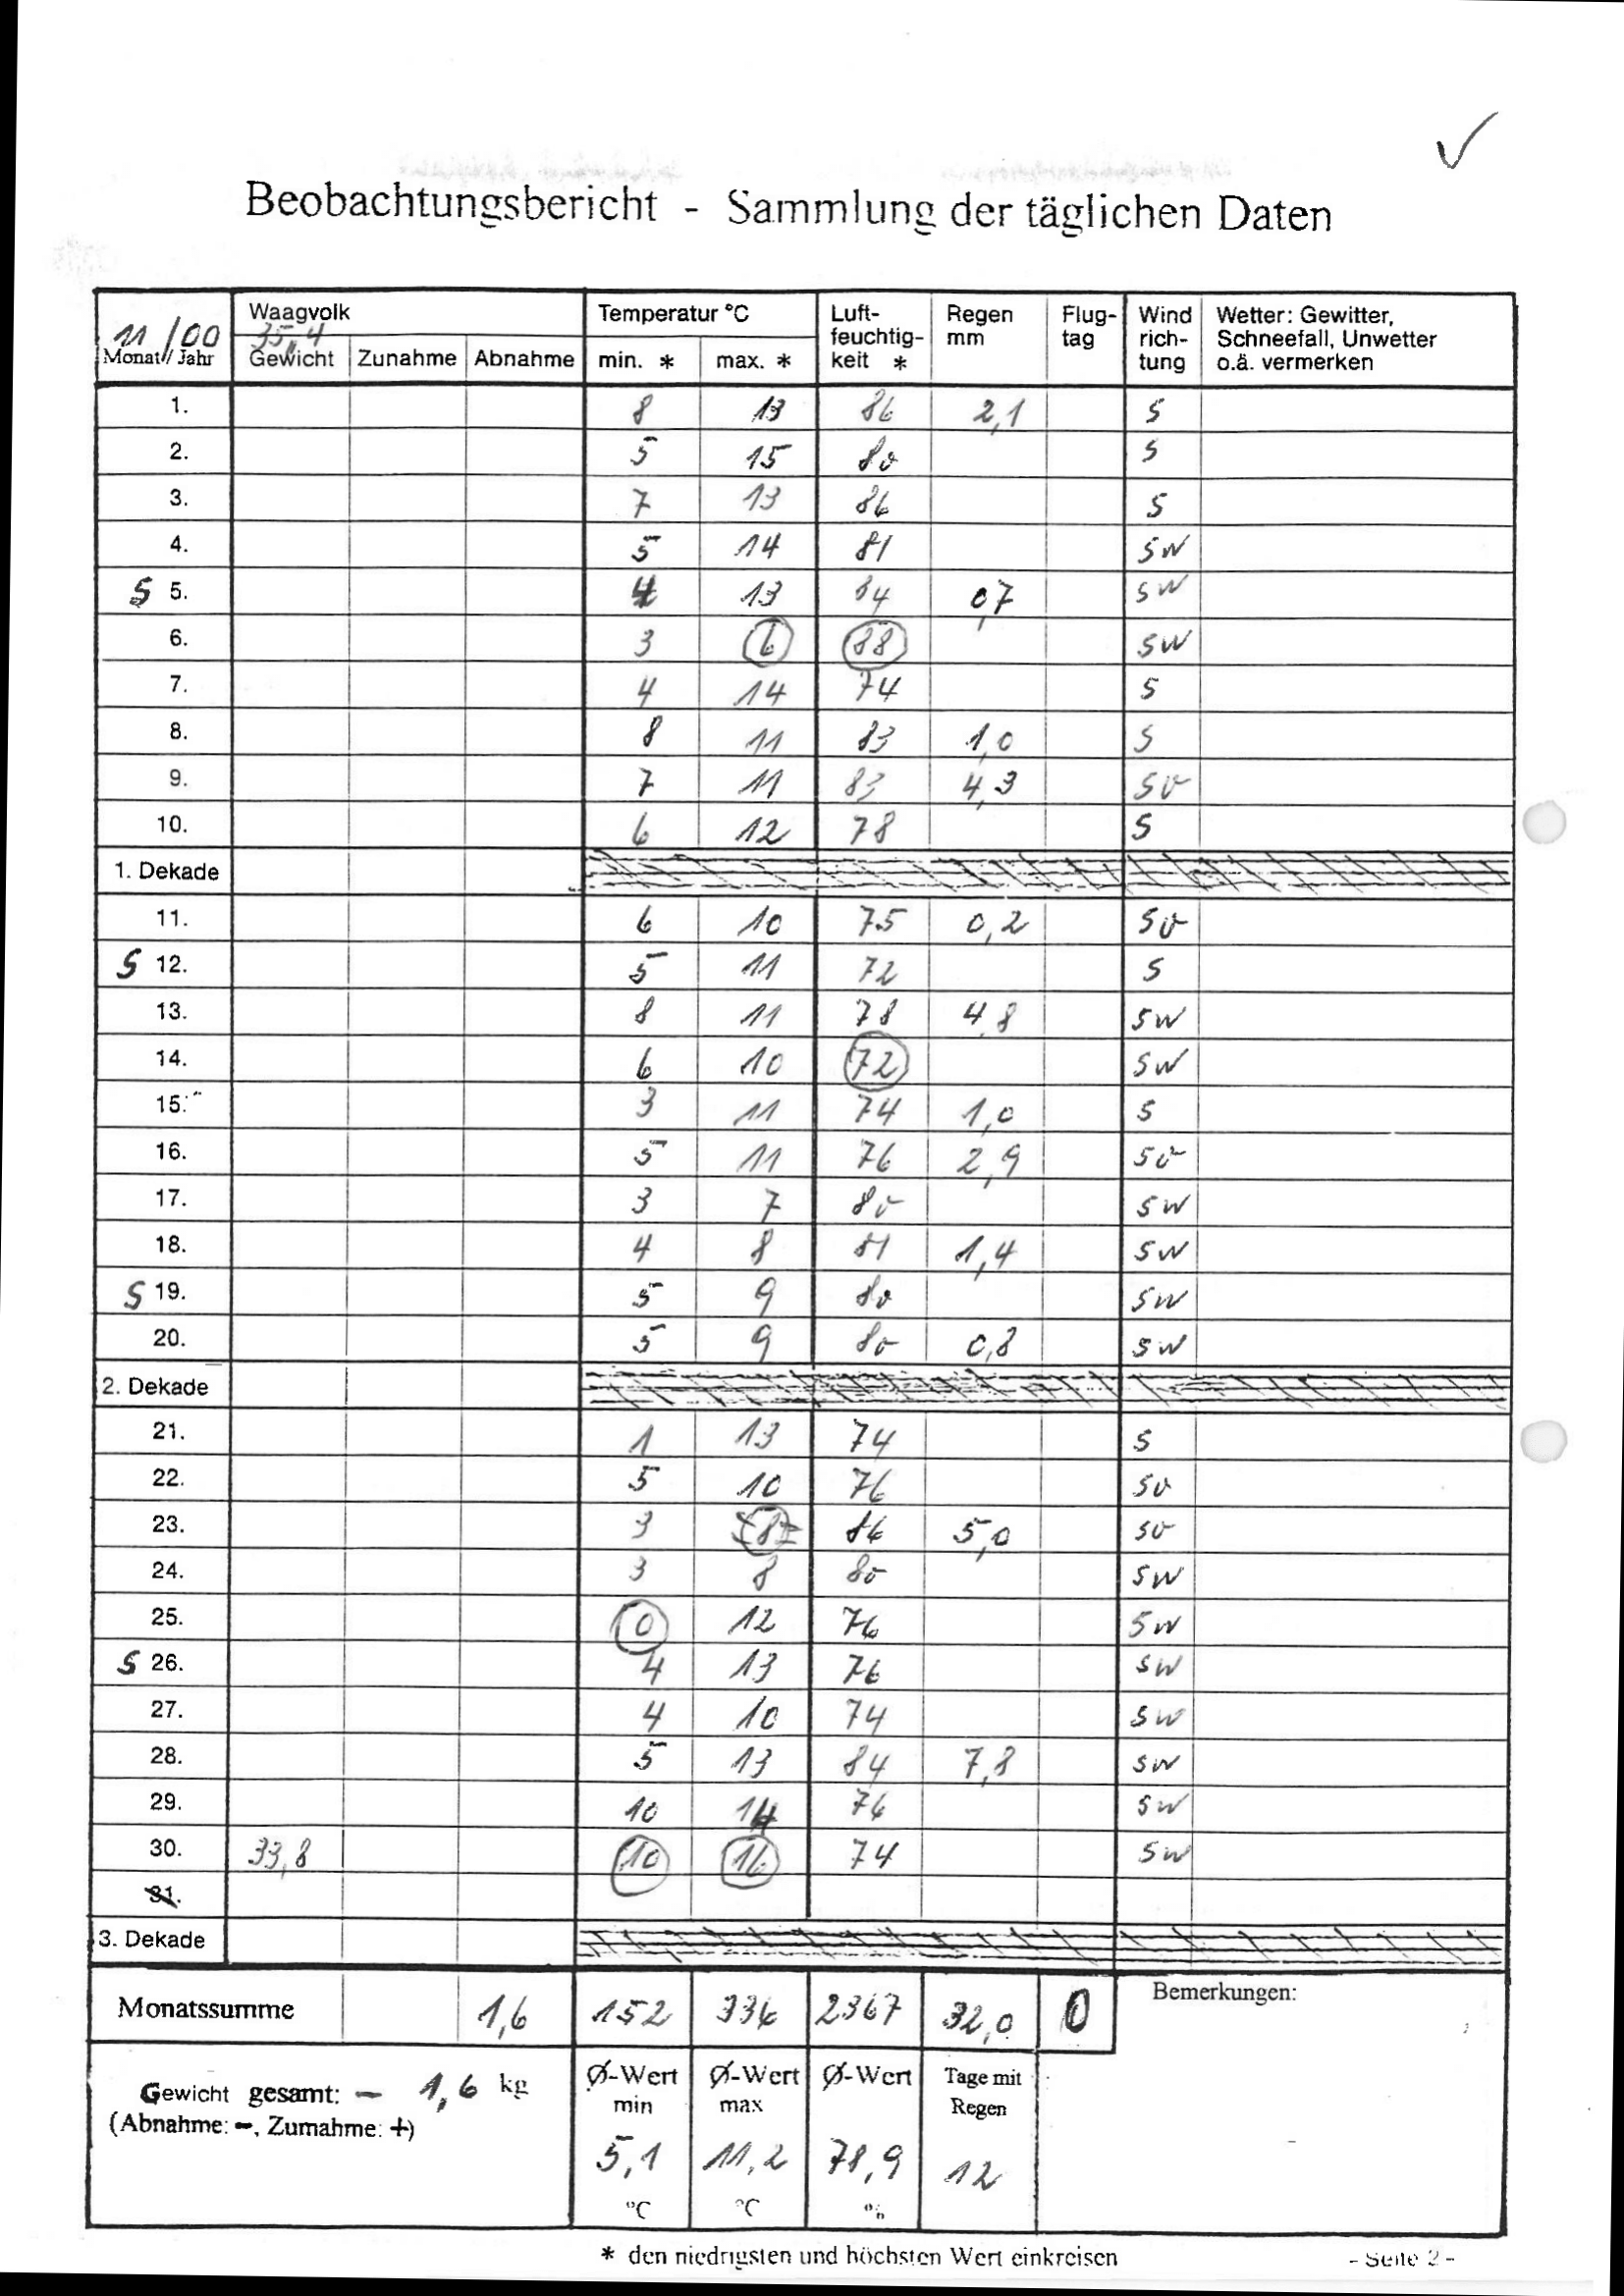 Beobachtungsbericht - Sammlung der täglichen Daten
11/00 Monat// Jahr | Waagvolk 35,4 | Temperatur °C | Luft-feuchtig-keit * | Regen mm | Flug-tag | Wind rich-tung | Wetter: Gewitter, Schneefall, Unwetter o.ä. vermerken
Gewicht | Zunahme | Abnahme | min. * | max. *
1. 8 13 86 2,1 S
2. 5 15 80 S
3. 7 13 86 S
4. 5 14 81 SW
S 5. 4 13 84 0,7 SW
6. 3 6 88 SW
7. 4 14 74 S
8. 8 11 83 1,0 S
9. 7 11 83 4,3 SO
10. 6 12 78 S
1. Dekade
11. 6 10 75 0,2 SO
S 12. 5 11 72 S
13. 8 11 78 4,8 SW
14. 6 10 72 SW
15. 3 11 74 1,0 S
16. 5 11 76 2,9 SO
17. 3 7 80 SW
18. 4 8 81 1,4 SW
S 19. 5 9 80 SW
20. 5 9 80 0,8 SW
2. Dekade
21. 1 13 74 S
22. 5 10 76 SO
23. 3 8 86 5,0 SO
24. 3 8 80 SW
25. 0 12 76 SW
S 26. 4 13 76 SW
27. 4 10 74 SW
28. 5 13 84 7,8 SW
29. 10 14 76 SW
30. 33,8 10 16 74 SW
31.
3. Dekade
Monatssumme 1,6 152 336 2367 32,0 0 Bemerkungen:
Gewicht gesamt: - 1,6 kg
(Abnahme: -, Zumahme: +)
Ø-Wert min 5,1 °C
Ø-Wert max 11,2 °C
Ø-Wert 78,9 %
Tage mit Regen 12
* den niedrigsten und höchsten Wert einkreisen
- Seite 2 -